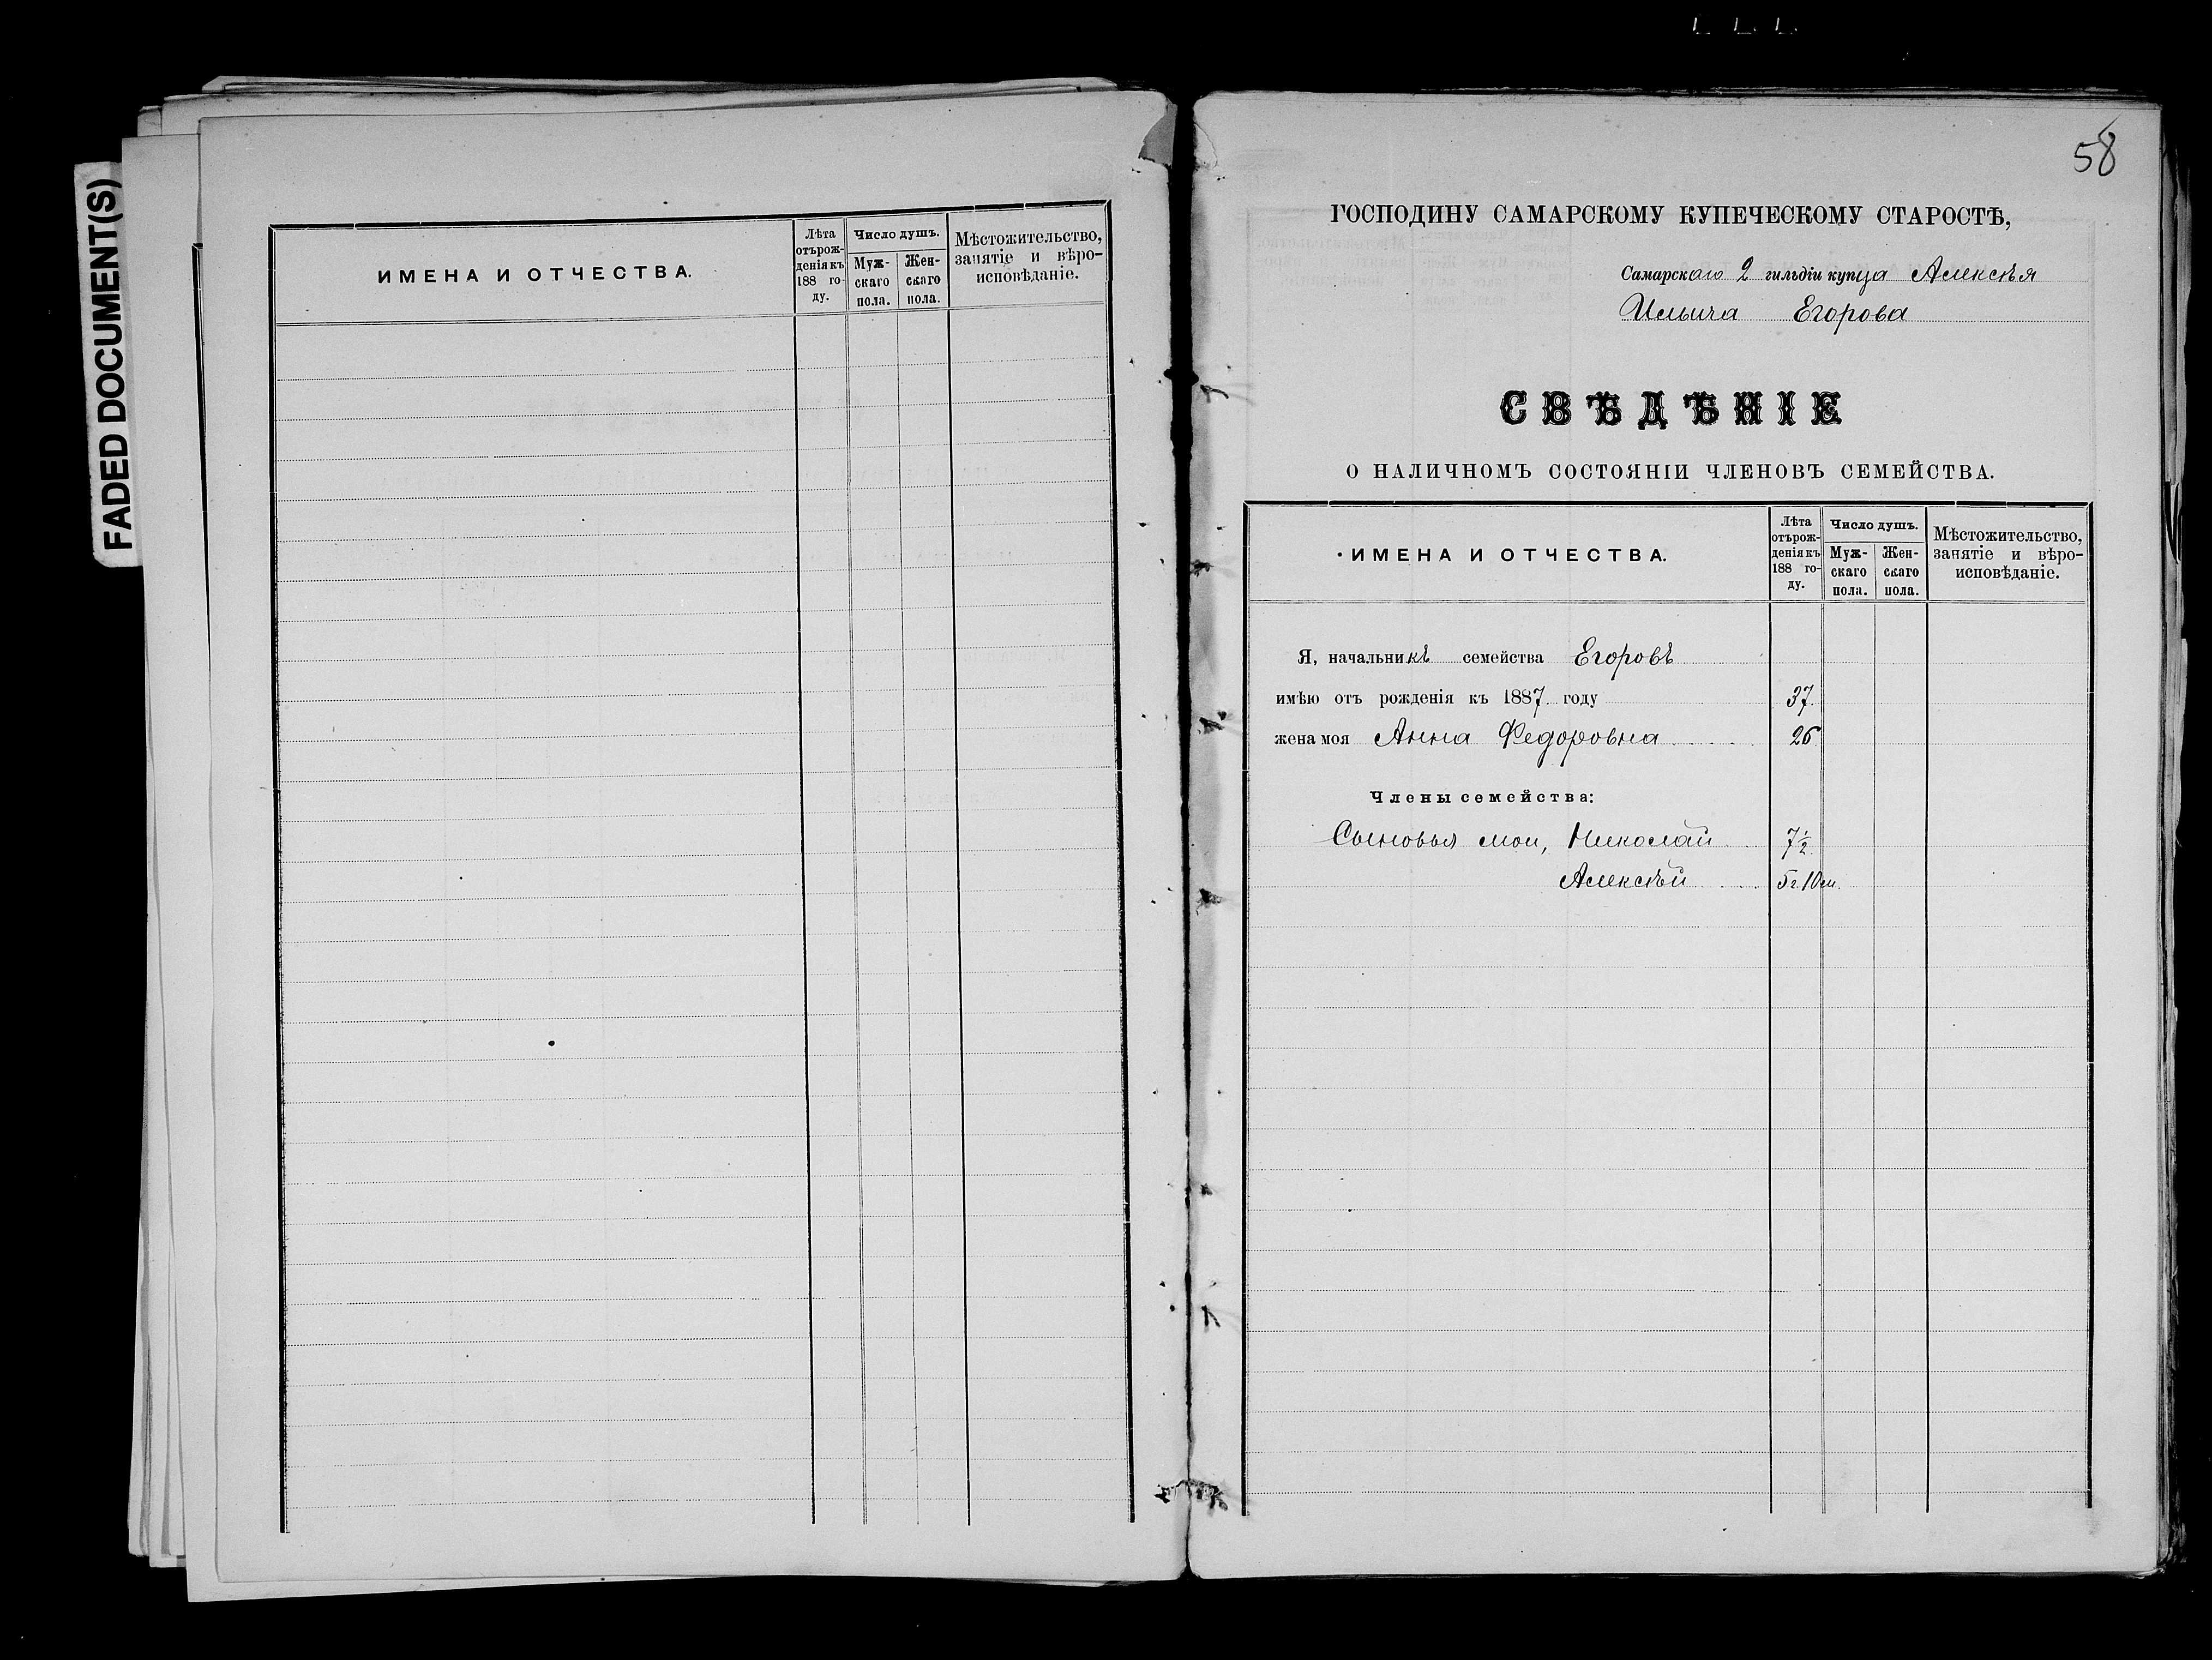 FADED DOCUMENT(S)
ИМЕНА И ОТЧЕСТВА.
Лѣта отърож-денія къ 188 го-ду.
Число душъ.
Муж-скаго пола.
Жен-скаго пола.
Мѣстожительство, занятіе и вѣро-исповѣданіе.
58
ГОСПОДИНУ САМАРСКОМУ КУПЕЧЕСКОМУ СТАРОСТѢ,
Самарскаго 2 гильдіи купца Алексѣя
Ильича Егорова
СВѢДѢНІЕ
О НАЛИЧНОМЪ СОСТОЯНІИ ЧЛЕНОВЪ СЕМЕЙСТВА.
ИМЕНА И ОТЧЕСТВА.
Лѣта отърож-денія къ 188 го-ду.
Число душъ.
Муж-скаго пола.
Жен-скаго пола.
Мѣстожительство, занятіе и вѣро-исповѣданіе.
Я, начальникъ семейства Егоровъ
имѣю отъ рожденія къ 1887 году 37.
жена моя Анна Федоровна 26
Члены семейства:
Сыновья мои, Николай 7½
Алексѣй 5 г. 10 м.